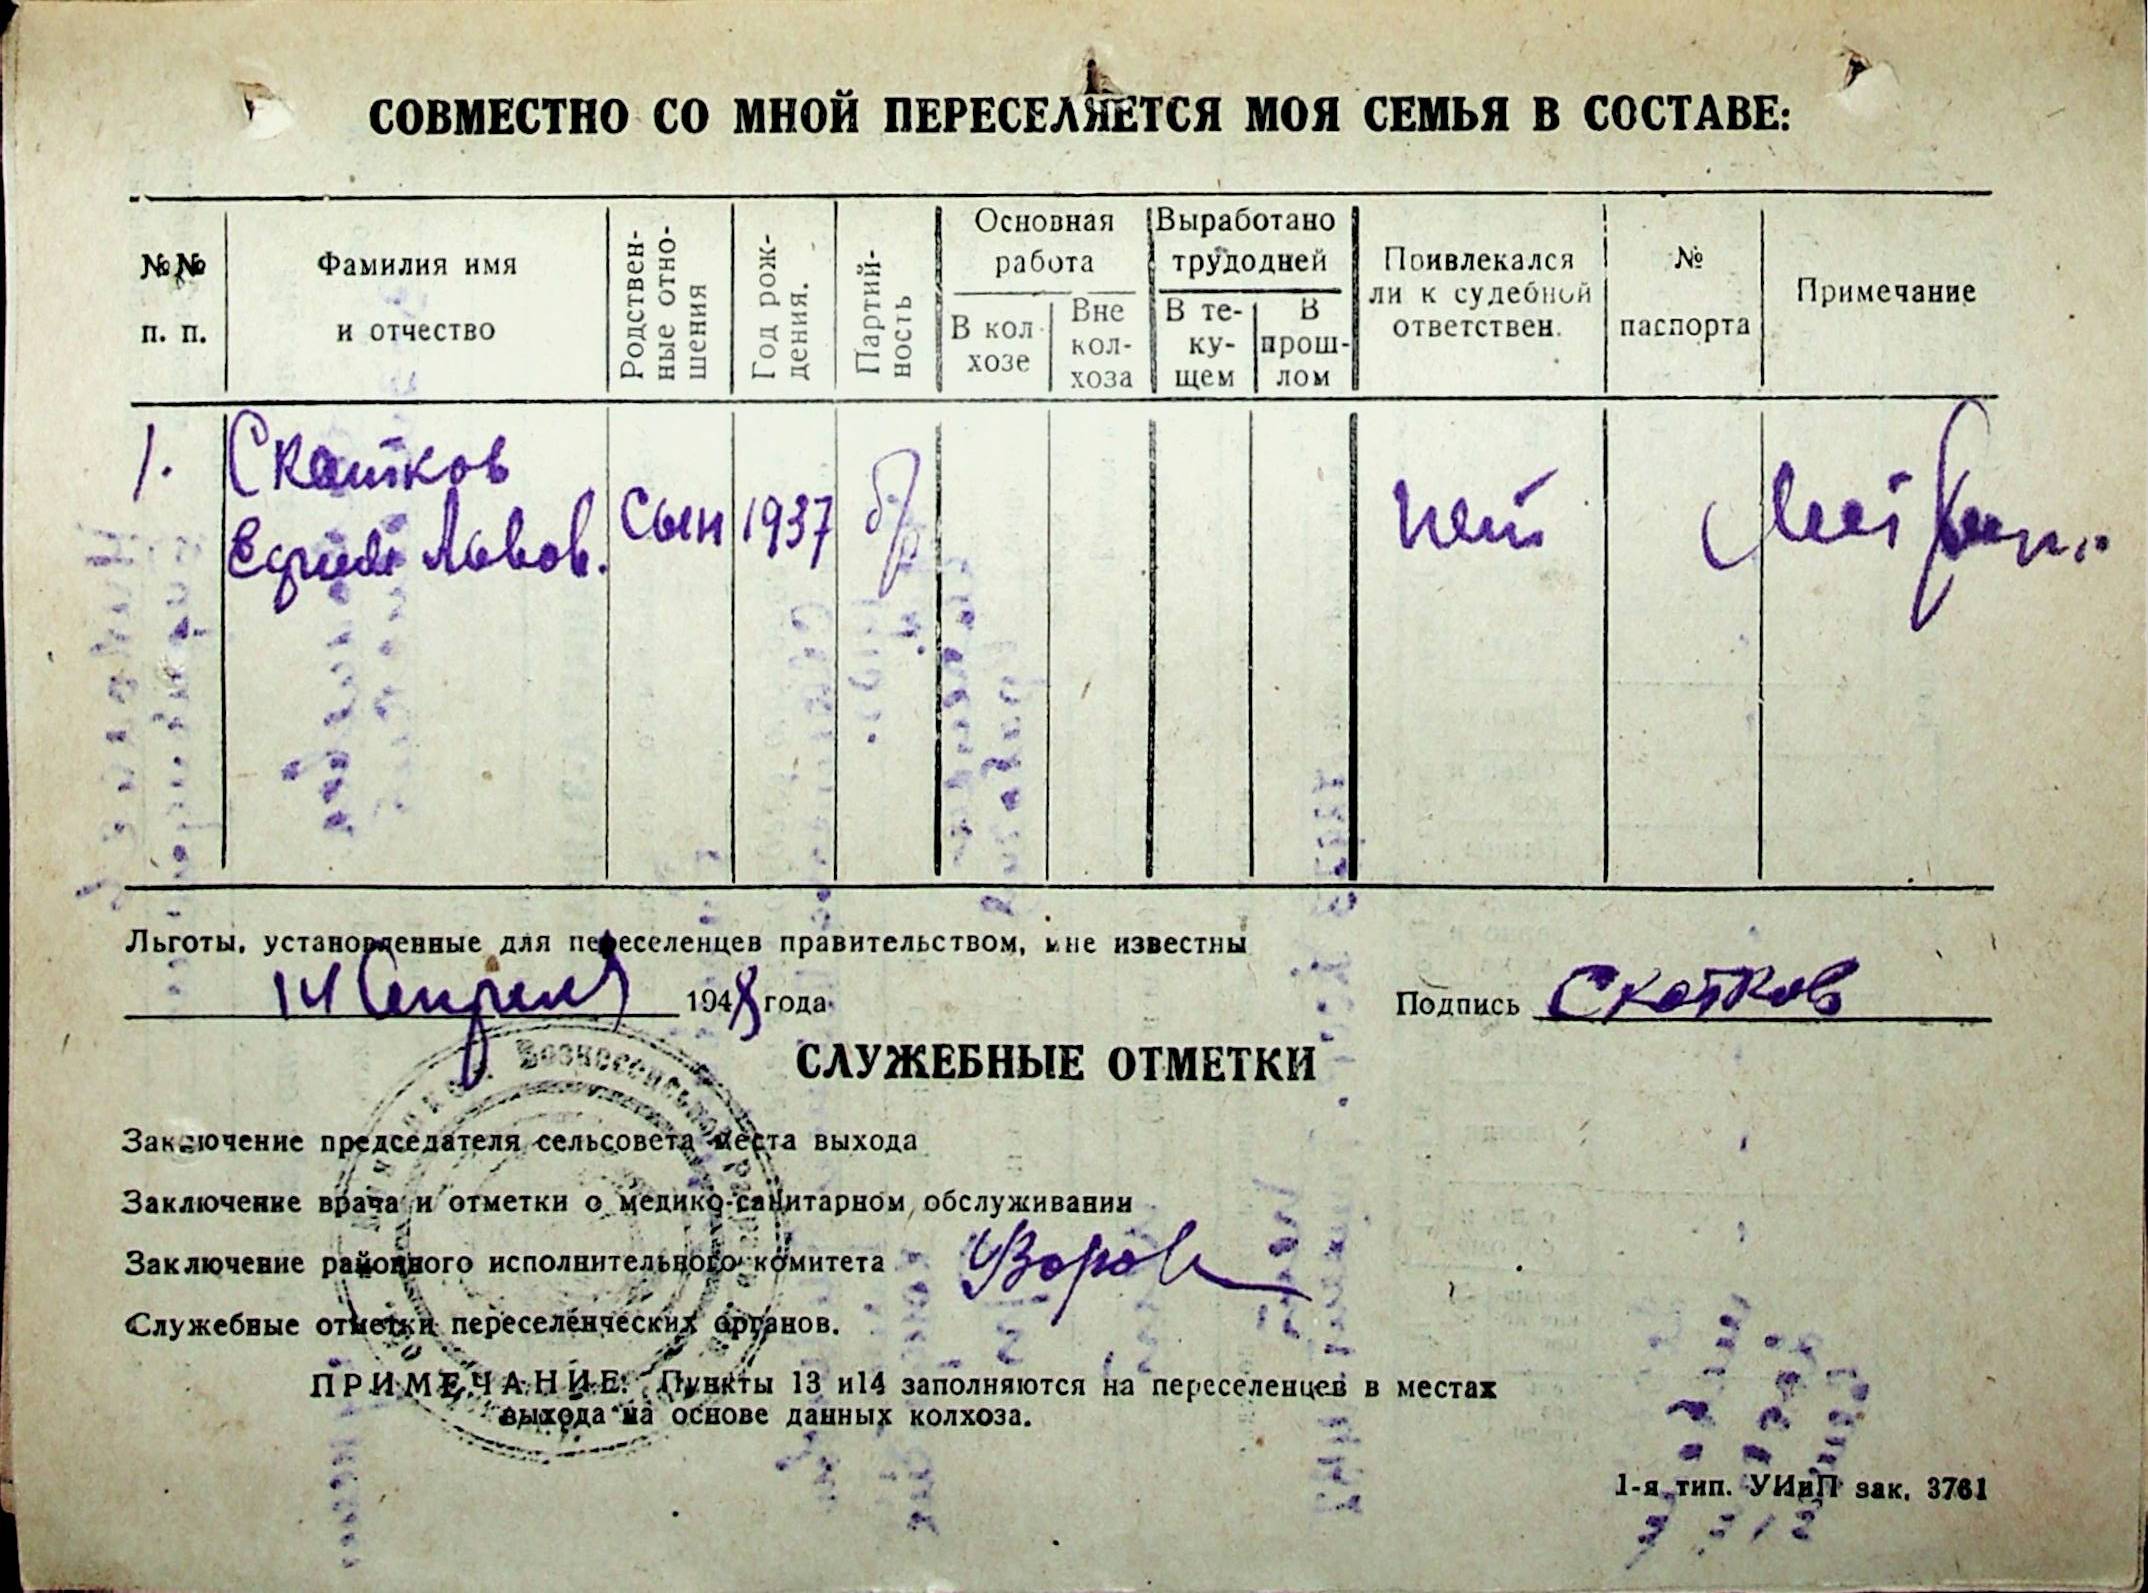 СОВМЕСТНО СО МНОЙ ПЕРЕСЕЛЯЕТСЯ МОЯ СЕМЬЯ В СОСТАВЕ:
№№ п. п.
Фамилия имя и отчество
Родствен-ные отно-шения
Год рож-дения.
Партий-ность
Основная работа
В кол-хозе
Вне кол-хоза
Выработано трудодней
В те-ку-щем
В прош-лом
Привлекался ли к судебной ответствен.
№ паспорта
Примечание
1.
Скатков
Львов.
сын
1937
б/
нет
Льготы, установленные для переселенцев правительством, мне известны
14 Апреля 1948 года
Подпись Скатков
СЛУЖЕБНЫЕ ОТМЕТКИ
Заключение председателя сельсовета места выхода
Заключение врача и отметки о медико-санитарном обслуживании
Заключение районного исполнительного комитета
Служебные отметки переселенческих органов.
ПРИМЕЧАНИЕ: Пункты 13 и14 заполняются на переселенцев в местах
выхода на основе данных колхоза.
1-я тип. УИиП зак. 3761